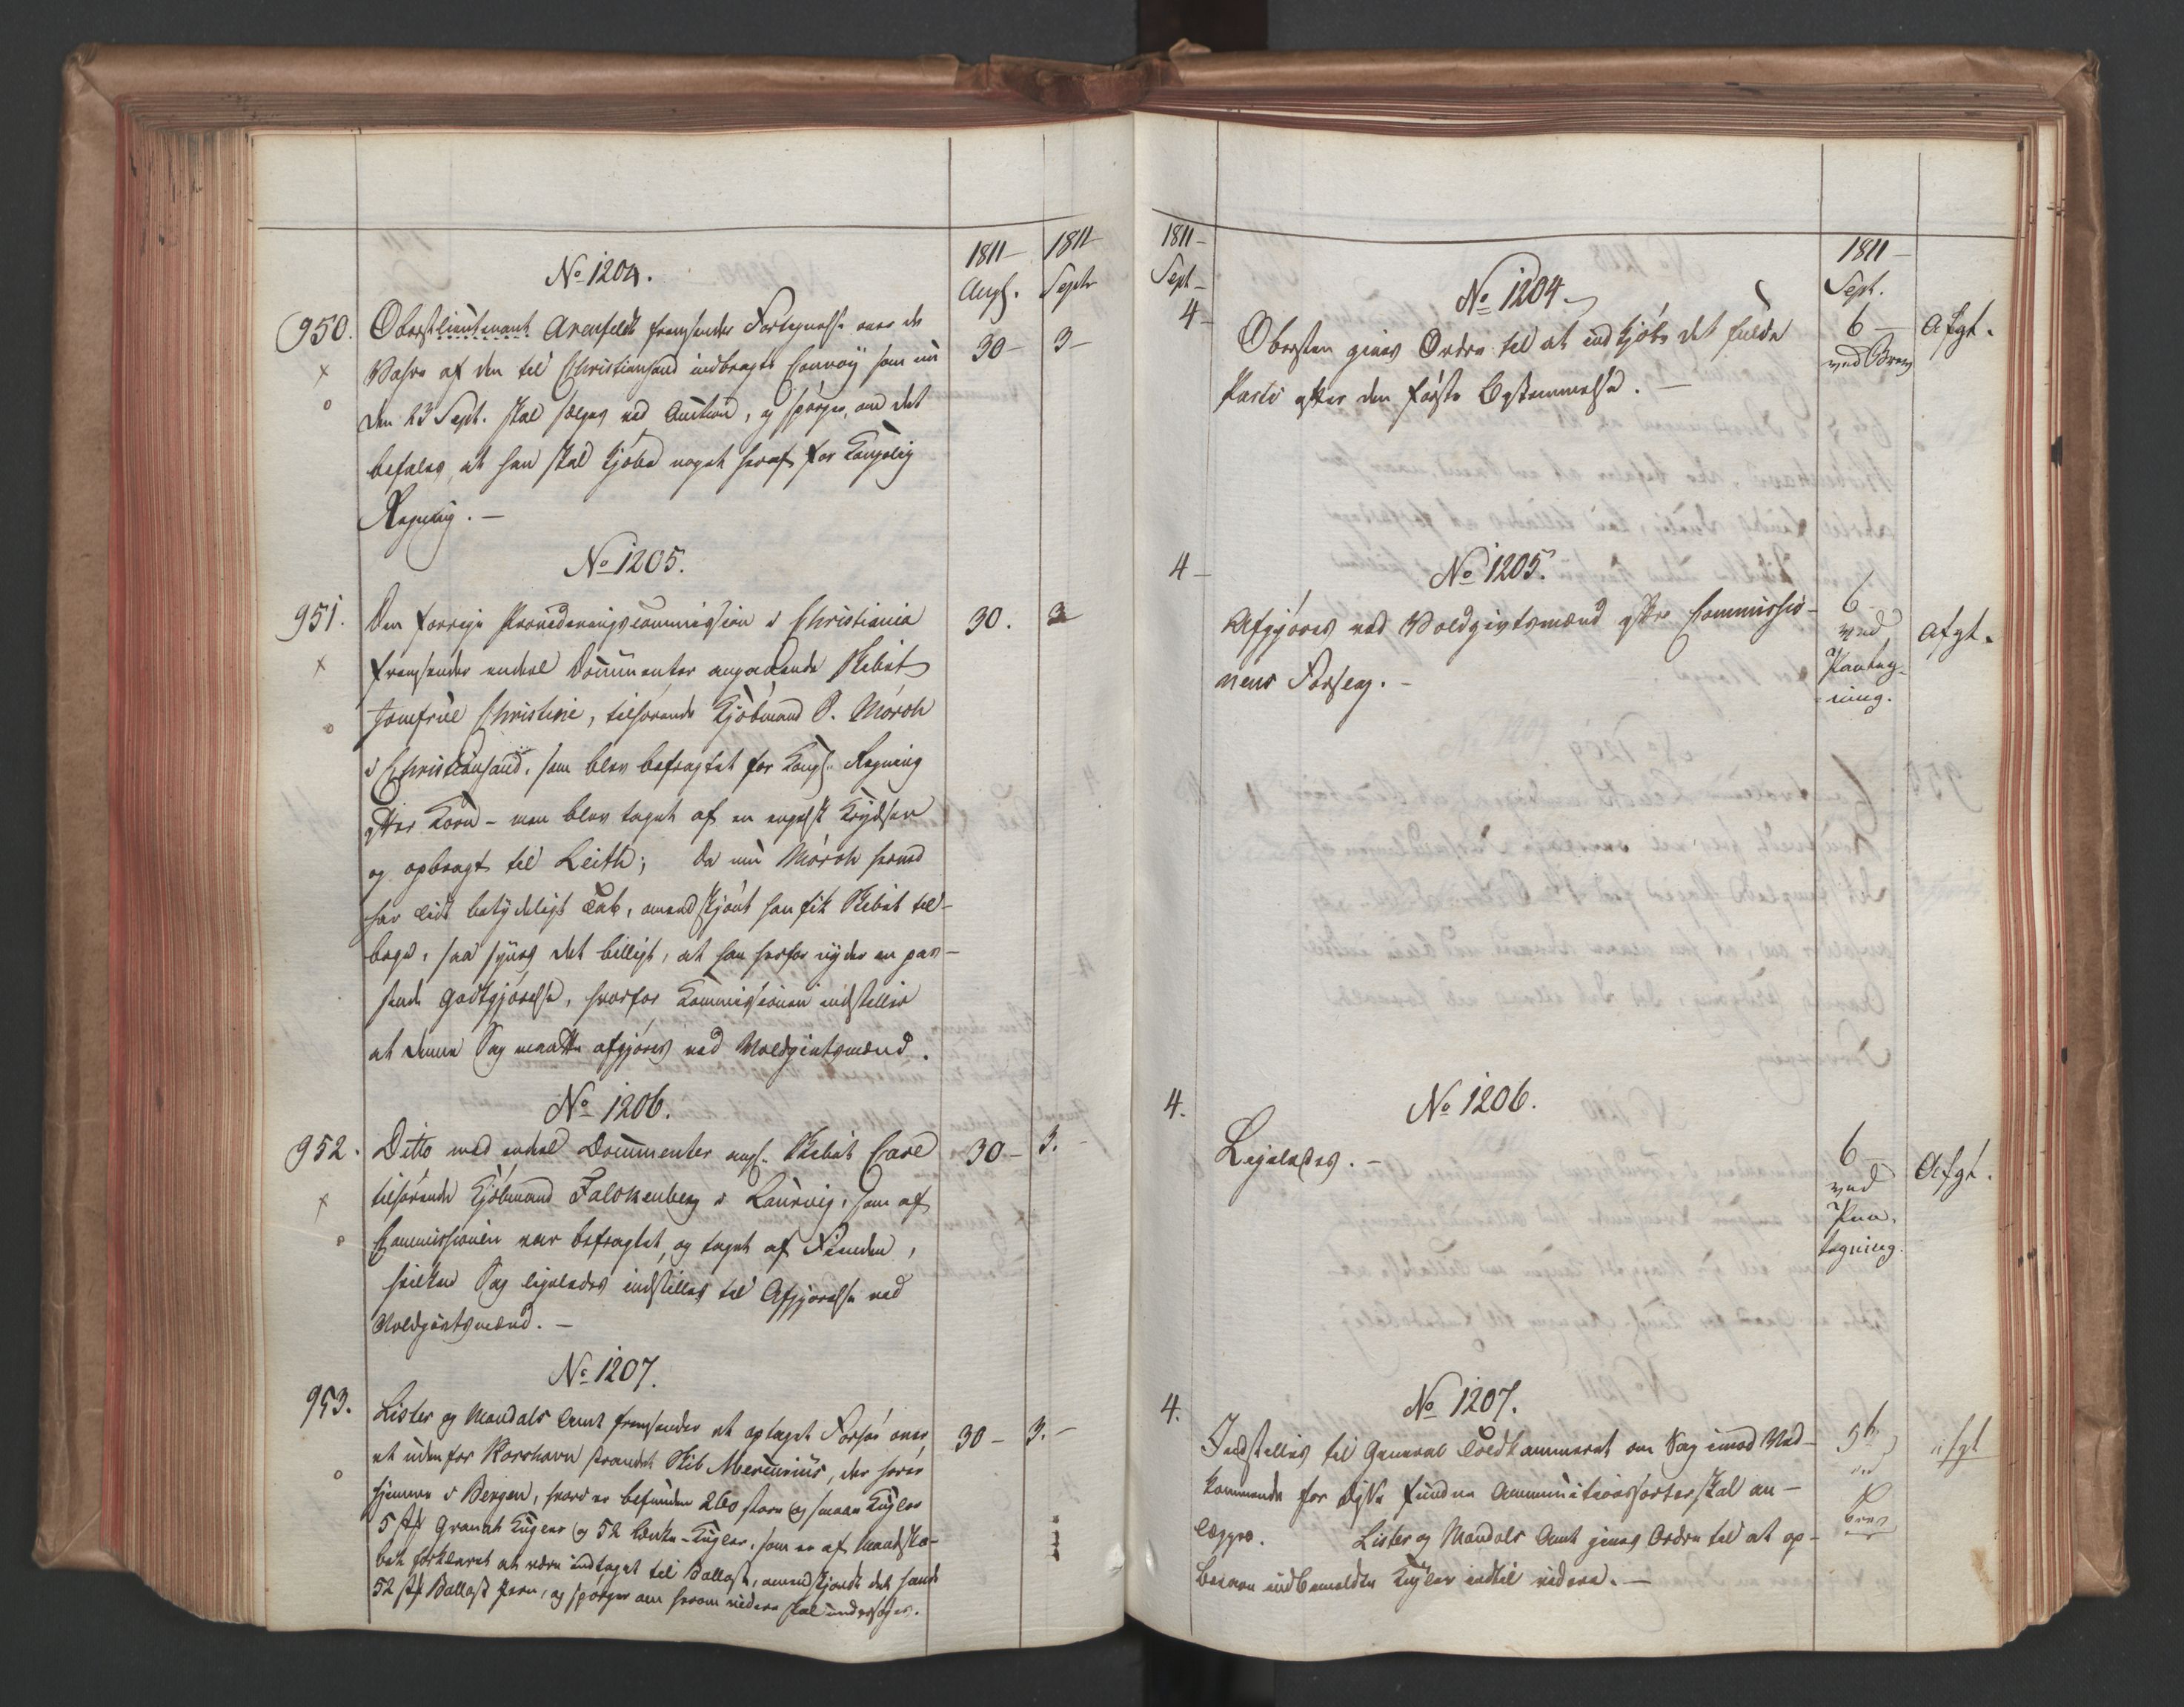 1811
Augs.
1811
Septr
No 1204.
950. Oberstlieutenant Arenfeldt fremsender Fortegnelse over de 30 - 3 -
Vahre af den til Christiansand indbragte Convoy som nu
den 23 Sept. skal sælges ved Auction, og spørger, om det
befales, at han skal kjøbe noget heraf for Kongelig
Regning. -
No 1205.
951. Den forrige Provideringscommission i Christiania 30. 3
fremsender endeel Documenter angaaende Skibet
Jomfrue Christine, tilhørende Kjøbmand P. Mörch
i Christiansand, som blev befragtet for Kongl. Regning
efter Korn - men blev taget af en engelsk Krydser
og opbragt til Leith; da nu Mörch herved
har lidt betydeligt Tab, omendskjønt han fik Skibet til-
bage, saa synes det billigt, at han herfor nyder en pas-
sende Godtgjørelse, hvorfor Commissionen indstiller
at denne Sag maatte afgjøres ved Voldgivtsmænd.
No 1206.
952. Ditto med endeel Documenter angl. Skibet Carl 30 - 3.
tilhørende Kjøbmand Falckenberg i Laurvig, som af
Commissionen var befragtet, og taget af Fienden,
hvilken Sag ligeledes indstilles til Afgjørelse ved
Voldgivtsmænd. -
No 1207.
953. Lister og Mandals Amt fremsender et optaget Forhør over 30 - 3. -
et uden for Korshavn strandet Skib Mercurius, der hører
hjemme i Bergen, hvori er befunden 260 store og smaa Kugler
5 st Granat Kugler og 52 Lænke-Kugler, som er af Mandska-
bet forklaret at være indtaget til Ballast, omendskjøndt det havde
52 st Ballast Jern, og spørger om herom videre skal undersøges.
1811 -
Sept -
1811 -
Sept.
4 -
No 1204.
Obersten gives Ordre til at indkjøbe det fulde
Parti efter den første Bestemmelse. -
6 -
ved Brev
Afgt.
4 -
No 1205.
Afgjøres ved Voldgivtsmænd efter Commissio-
nens Forslag. -
6 -
ved
Paateg-
ning.
Afgt.
4.
No 1206.
Ligeledes. -
6 -
ved
Paa-
tegning.
Afgt.
4.
No 1207.
Indstilles til General Toldkammeret om Sag imod Ved-
kommende for disse fundne Ammunitionssorter skal an-
lægges. Lister og Mandals Amt gives Ordre til at op-
bevare indbemeldte Kugler indtil videre. -
5
ved
Brev
Afgt